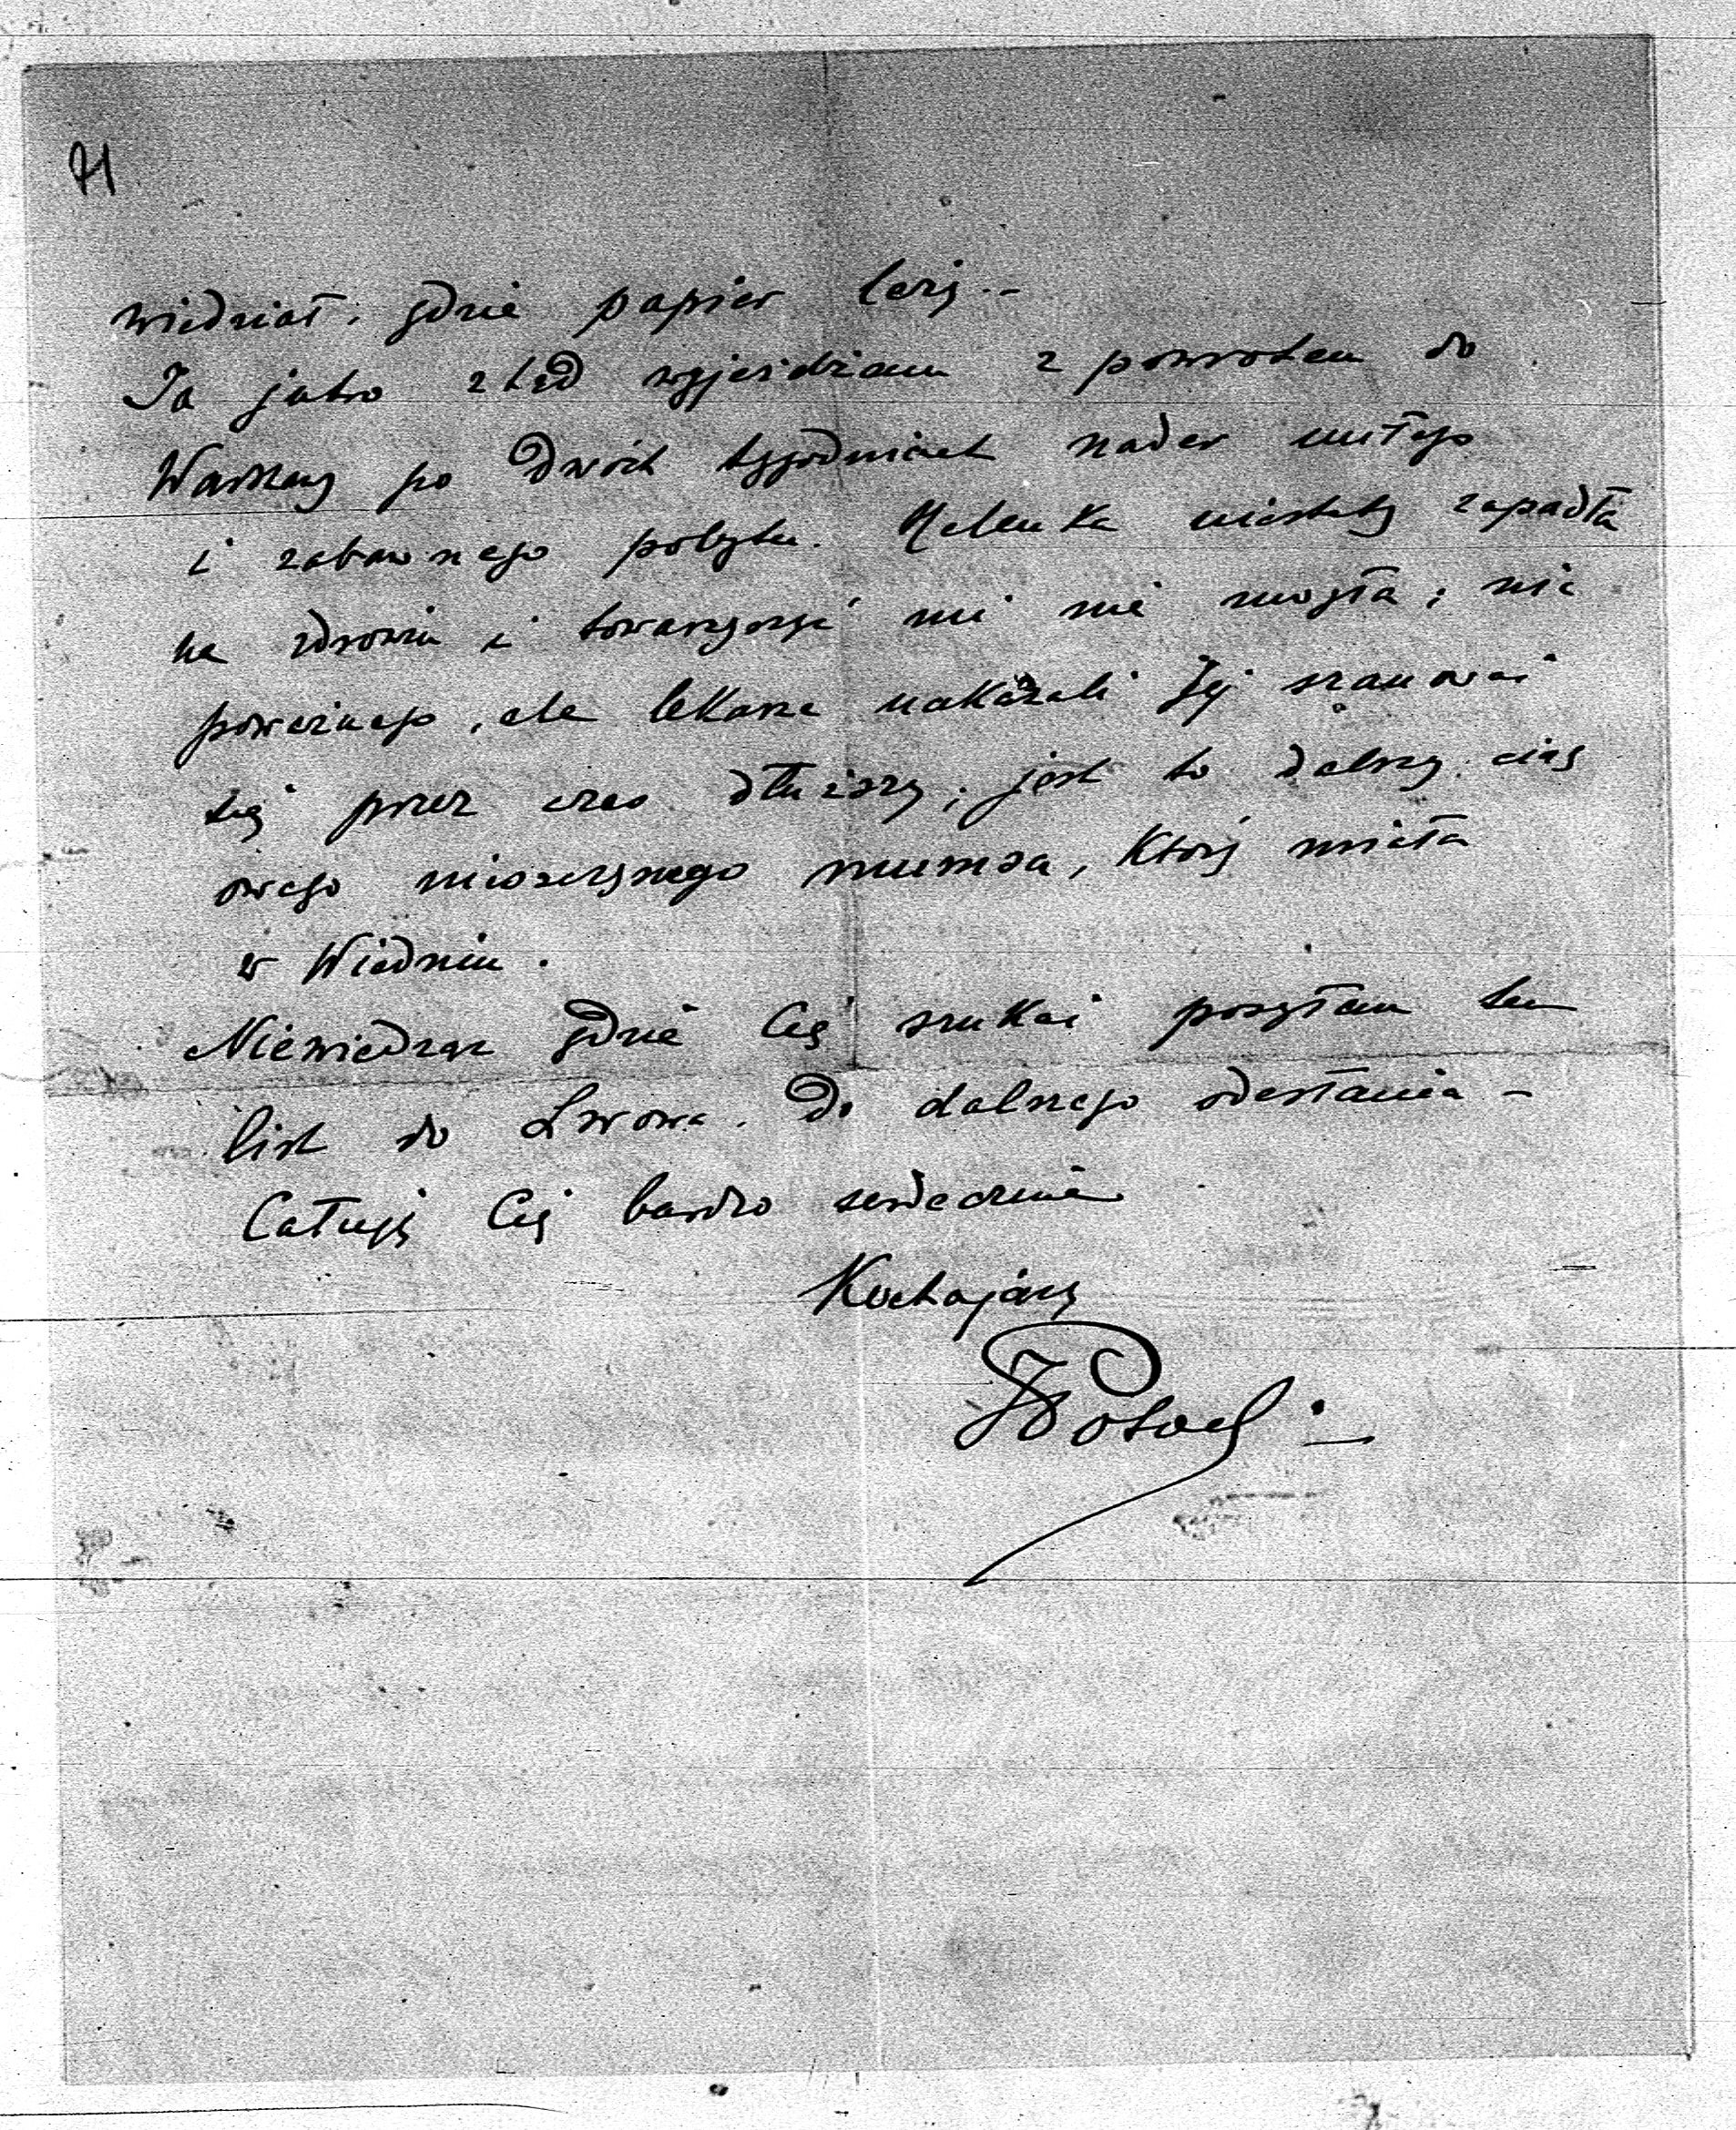 71
wiedział, gdzie papier leży. –
Ja jutro ztąd wyjeżdżam z powrotem do
Warszawy po dwóch tygodniach nader miłego
i zabawnego pobytu. Helenka niestety zapadła
na zdrowiu i towarzyszyć mi nie mogła; nic
poważnego, ale lekarze nakazali Jej szanować
się przez czas dłuższy; jest to dalszy ciąg
owego nieszczęsnego mumsa, który miała
w Wiedniu.
Niewiedząc gdzie Cię szukać posyłam ten
list do Lwowa. Do dalszego odesłania –
Całuję Cię bardzo serdecznie
Kochający
Potocki